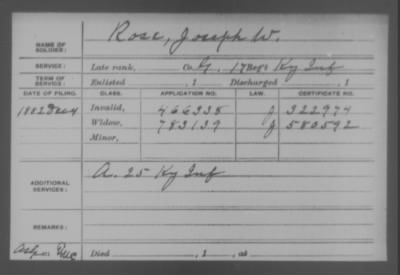 NAME OF SOLDIER: Rose, Joseph W.
SERVICE: Late rank, Co. G. 17 Reg't Ky Inf
TERM OF SERVICE: Enlisted , 1 Discharged , 1
DATE OF FILING. CLASS. APPLICATION NO. LAW. CERTIFICATE NO.
1882 Dec 4 Invalid, 466338 J 322974
Widow, 783139 J 580592
Minor,
ADDITIONAL SERVICES: A. 25 Ky Inf
REMARKS:
Died , 1 , at